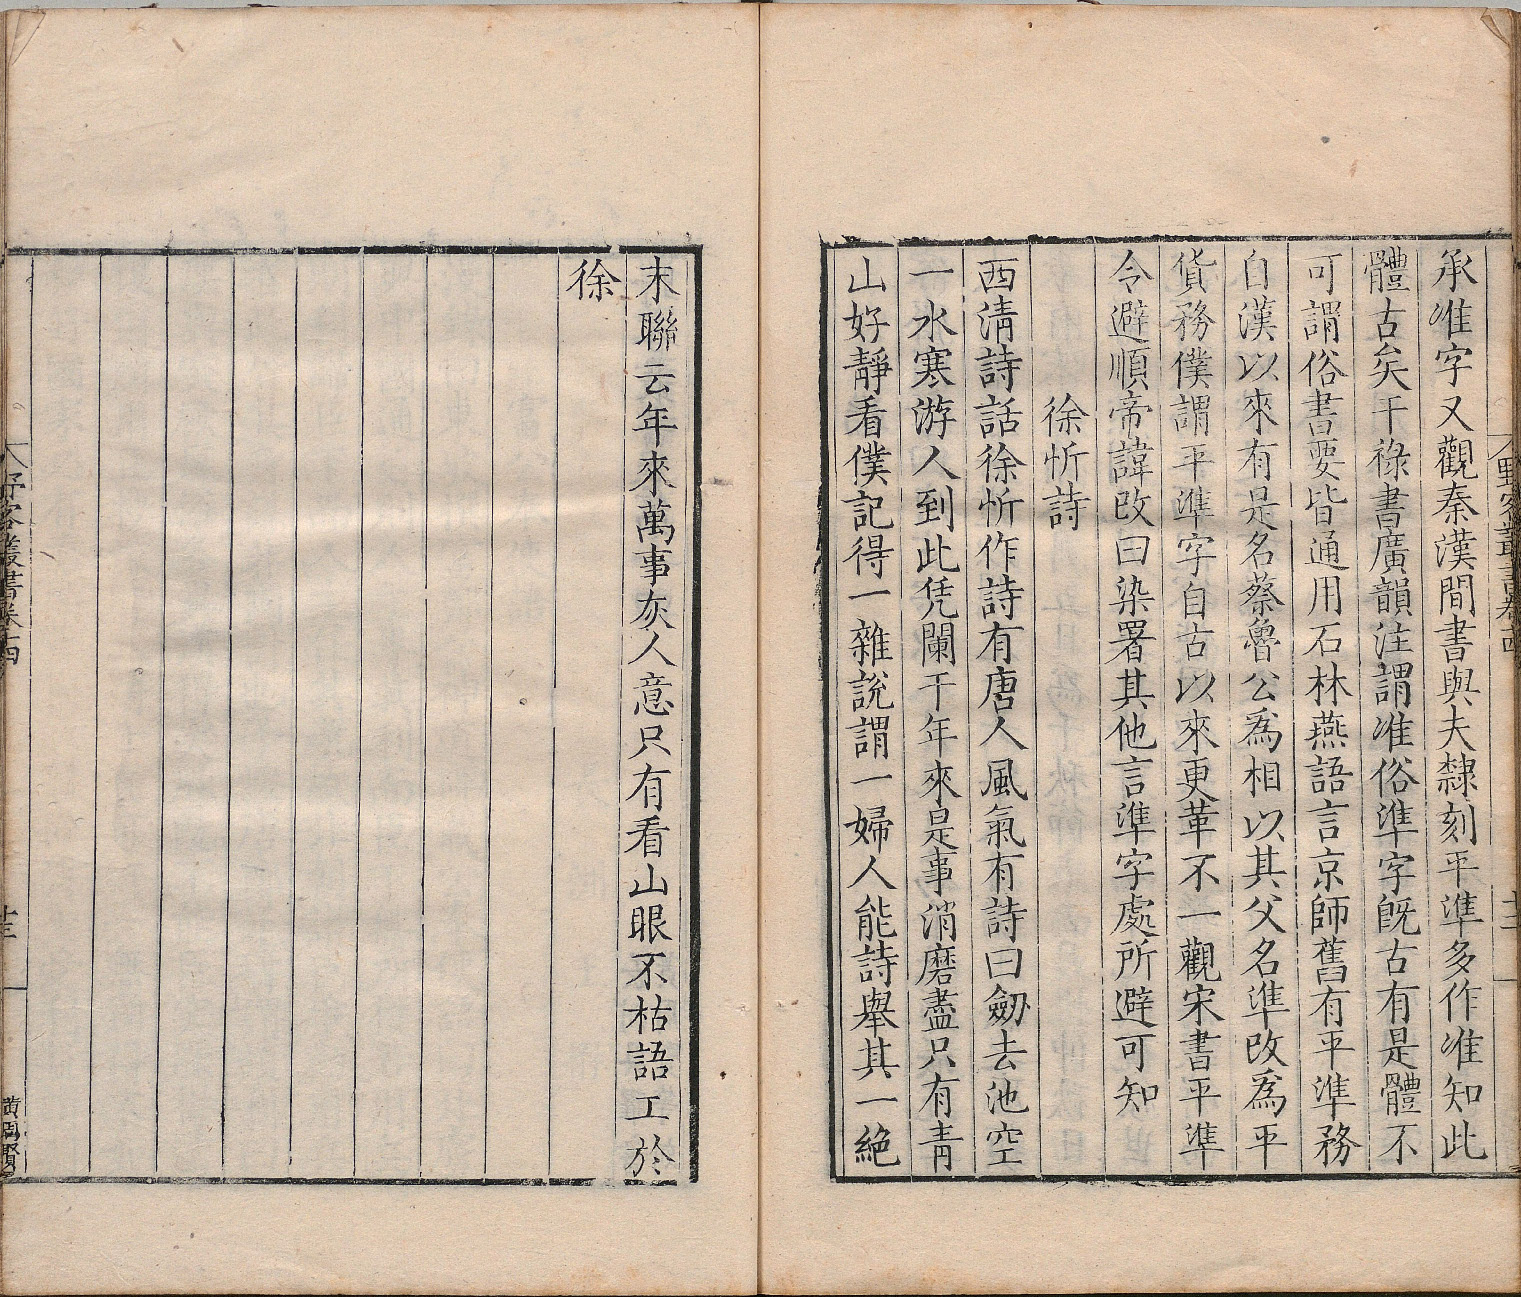 承准字又觀秦漢間書與夫隸刻平準多作准知此
體古矣干祿書廣韻注謂准俗準字旣古有是體不
可謂俗書要皆通用石林燕語言京師舊有平準務
自漢以來有是名蔡魯公爲相以其父名準改爲平
貨務僕謂平準字自古以來更革不一觀宋書平準
令避順帝諱改曰染署其他言準字處所避可知
徐忻詩
西清詩話徐忻作詩有唐人風氣有詩曰劒去池空
一水寒游人到此凭闌干年來是事消磨盡只有青
山好靜看僕記得一雜說謂一婦人能詩舉其一絕
末聯云年來萬事灰人意只有看山眼不枯語工於
徐
野客叢書卷十四
十三
黄周賢